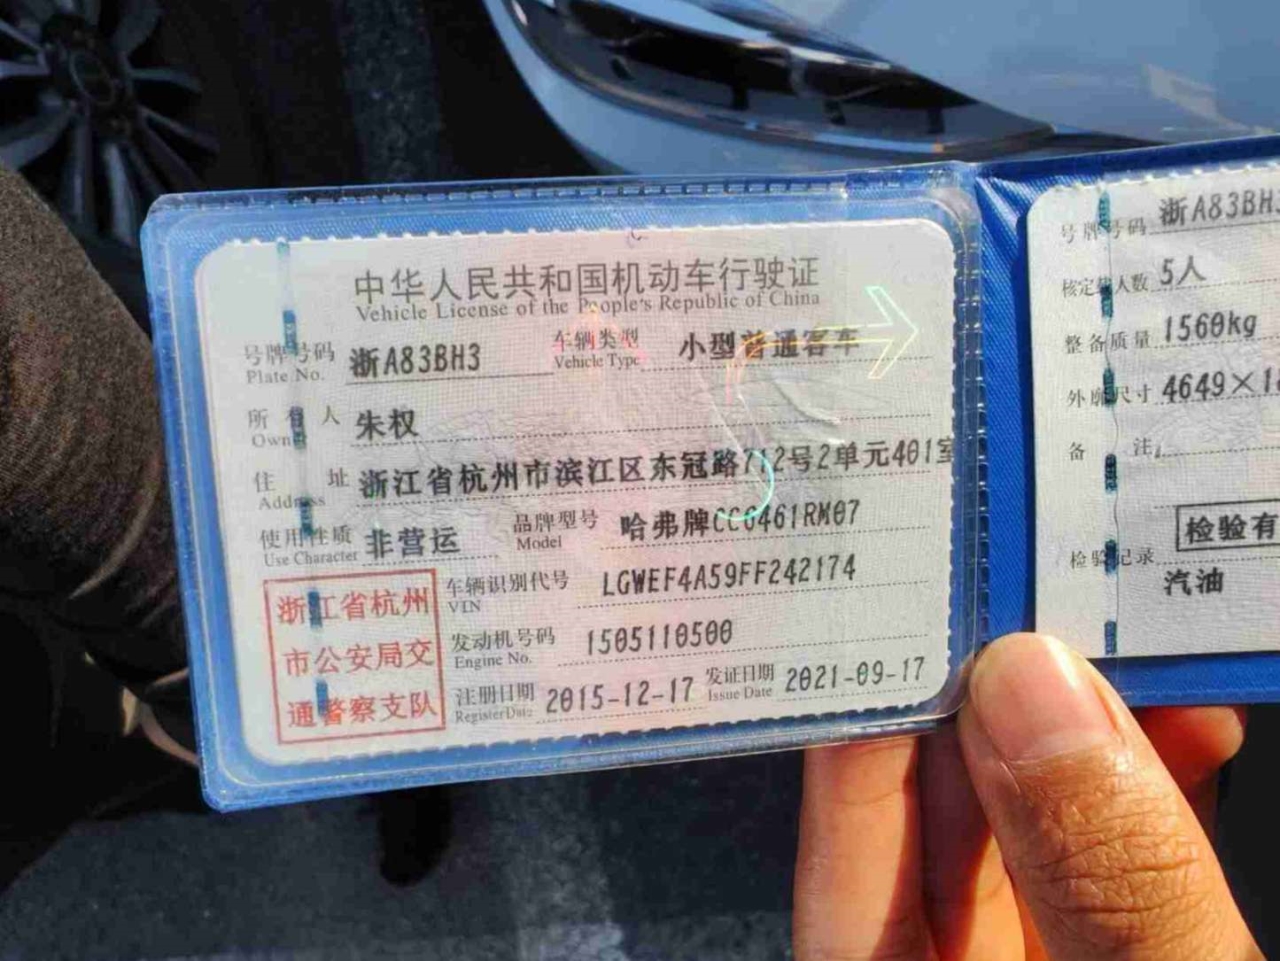 中华人民共和国机动车行驶证
Vehicle License of the People's Republic of China
号牌号码 浙A83BH3 车辆类型 小型普通客车
Plate No. Vehicle Type
所有人 朱权
Owner
住址 浙江省杭州市滨江区东冠路712号2单元401室
Address
使用性质 非营运 品牌型号 哈弗牌CC6461RM07
Use Character Model
车辆识别代号 LGWEF4A59FF242174
VIN
发动机号码 1505110500
Engine No.
注册日期 2015-12-17 发证日期 2021-09-17
Register Date Issue Date
浙江省杭州
市公安局交
通警察支队
号牌号码 浙A83BH
核定载人数 5人
整备质量 1560kg
外廓尺寸 4649×18
备注
检验有
检验记录
汽油